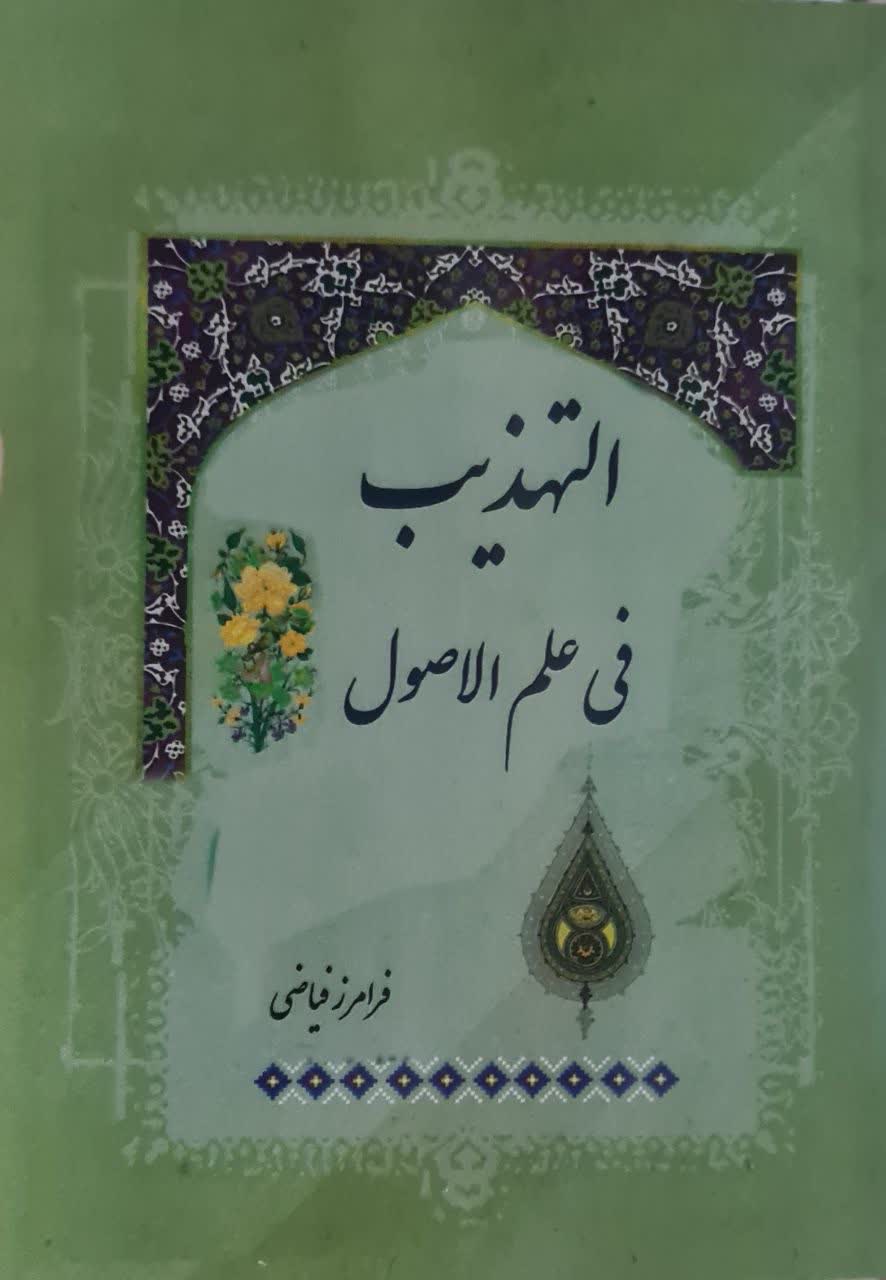 التهذیب
فی علم الاصول
فرامرز فیاضی